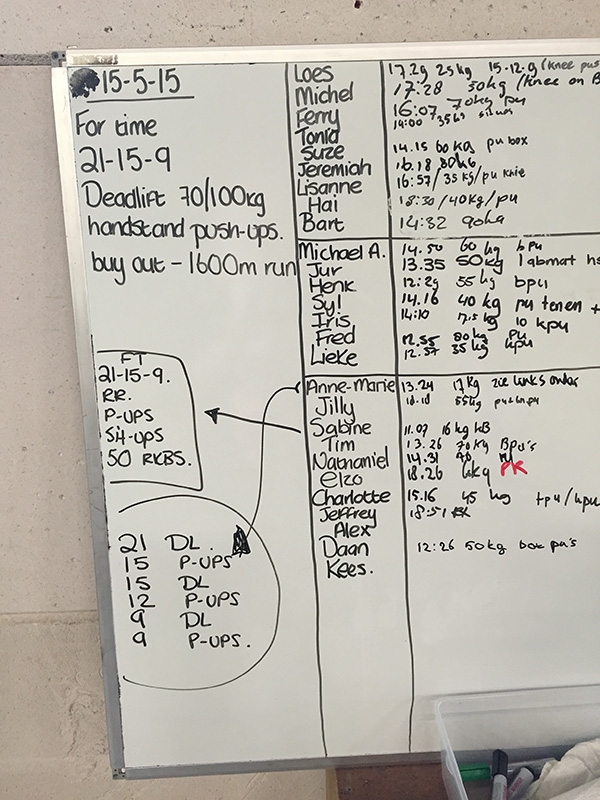 15-5-15
For time
21-15-9
Deadlift 70/100kg
handstand push-ups.
buy out - 1600m run
FT
21-15-9.
RR.
P-UPS
Sit-UPS
50 RKBS.
21 DL.
15 P-UPS
15 DL
12 P-UPS
9 DL
9 P-UPS.
Loes 17.29 25kg 15-12-9 (knee pus
Michel 17:28 50kg (knee on B
Ferry 16:07 70kg pu
Tonia 14:00 35kg
Suze 14.15 60kg pu box
Jeremiah 16.18 80kg
Lisanne 16:57/35kg/pu knie
Hai 18:30/40kg/pu
Bart 14:32 90kg
Michael A. 14.50 60 kg bpu
Jur 13.35 50kg 1 abmat hs
Henk 12:29 55 kg bpu
Syl 14.16 40 kg pu tenen +
Iris 14:10 17.5 kg 10 kpu
Fred 12.55 80kg pu
Lieke 12.57 35 kg kpu
Anne-Marie 13.24 17kg zie links onder
Jilly 55kg
Sabine 11.07 16 kg KB
Tim 13.26 70kg Bpu's
Nathaniel 14.31 90 pu
Elzo 18.26 kg PR
Charlotte 15.16 45 kg tpu/kpu
Jeffrey 18:51 RX
Alex
Daan 12:26 50kg box pu's
Kees.